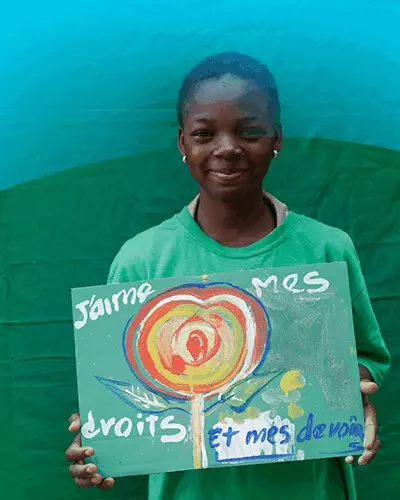 J'aime mes
droits Et mes devoirs